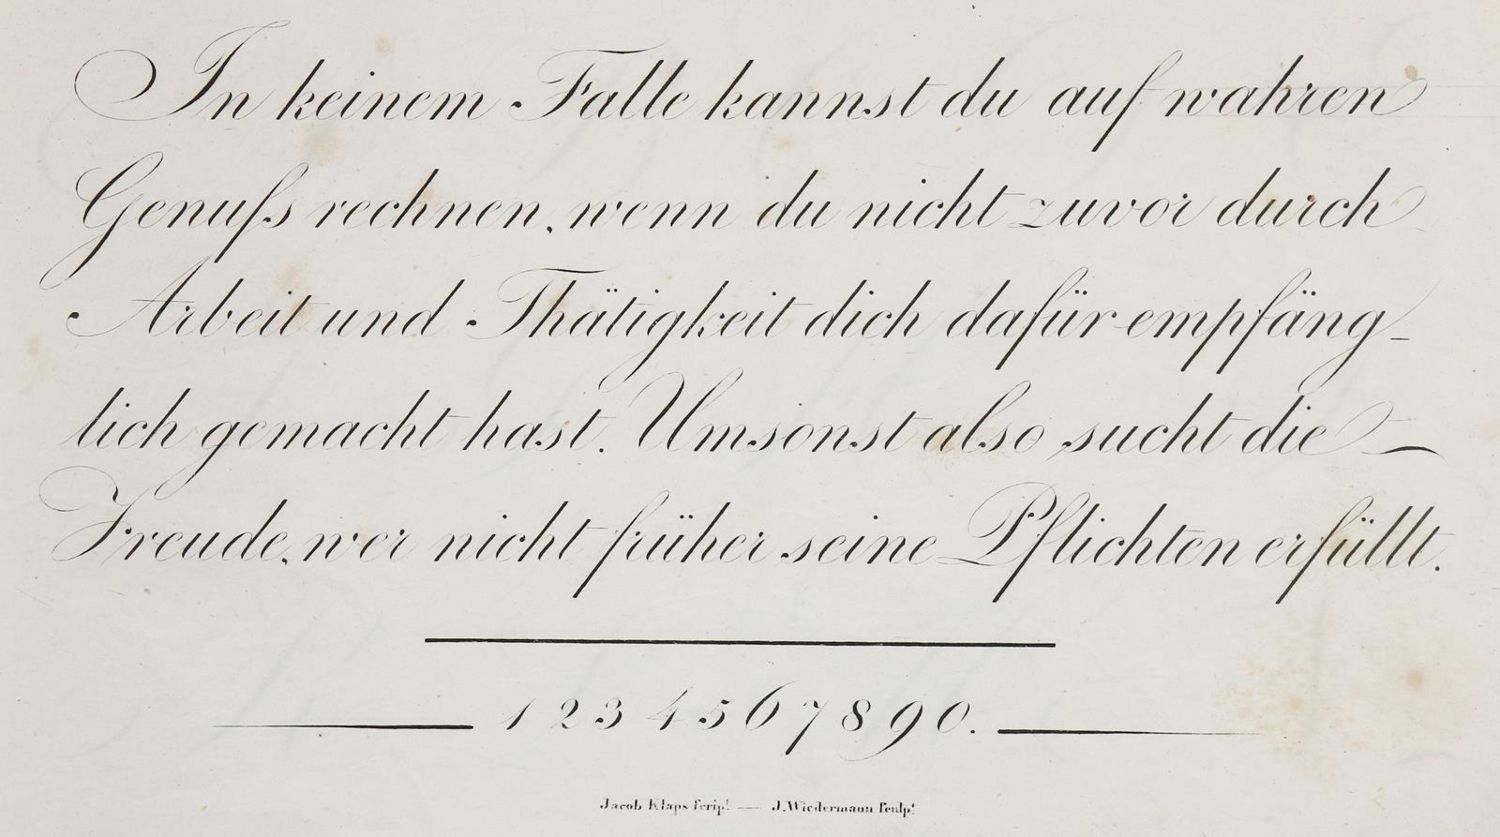 In keinem Falle kannst du auf wahren
Genuſs rechnen, wenn du nicht zuvor durch
Arbeit und Thätigkeit dich dafür empfäng-
lich gemacht hast. Umsonst also sucht die
Freude, wer nicht früher seine Pflichten erfüllt.
1 2 3 4 5 6 7 8 9 0.
Jacob Klaps ſcript — J. Wiedermann ſculpt